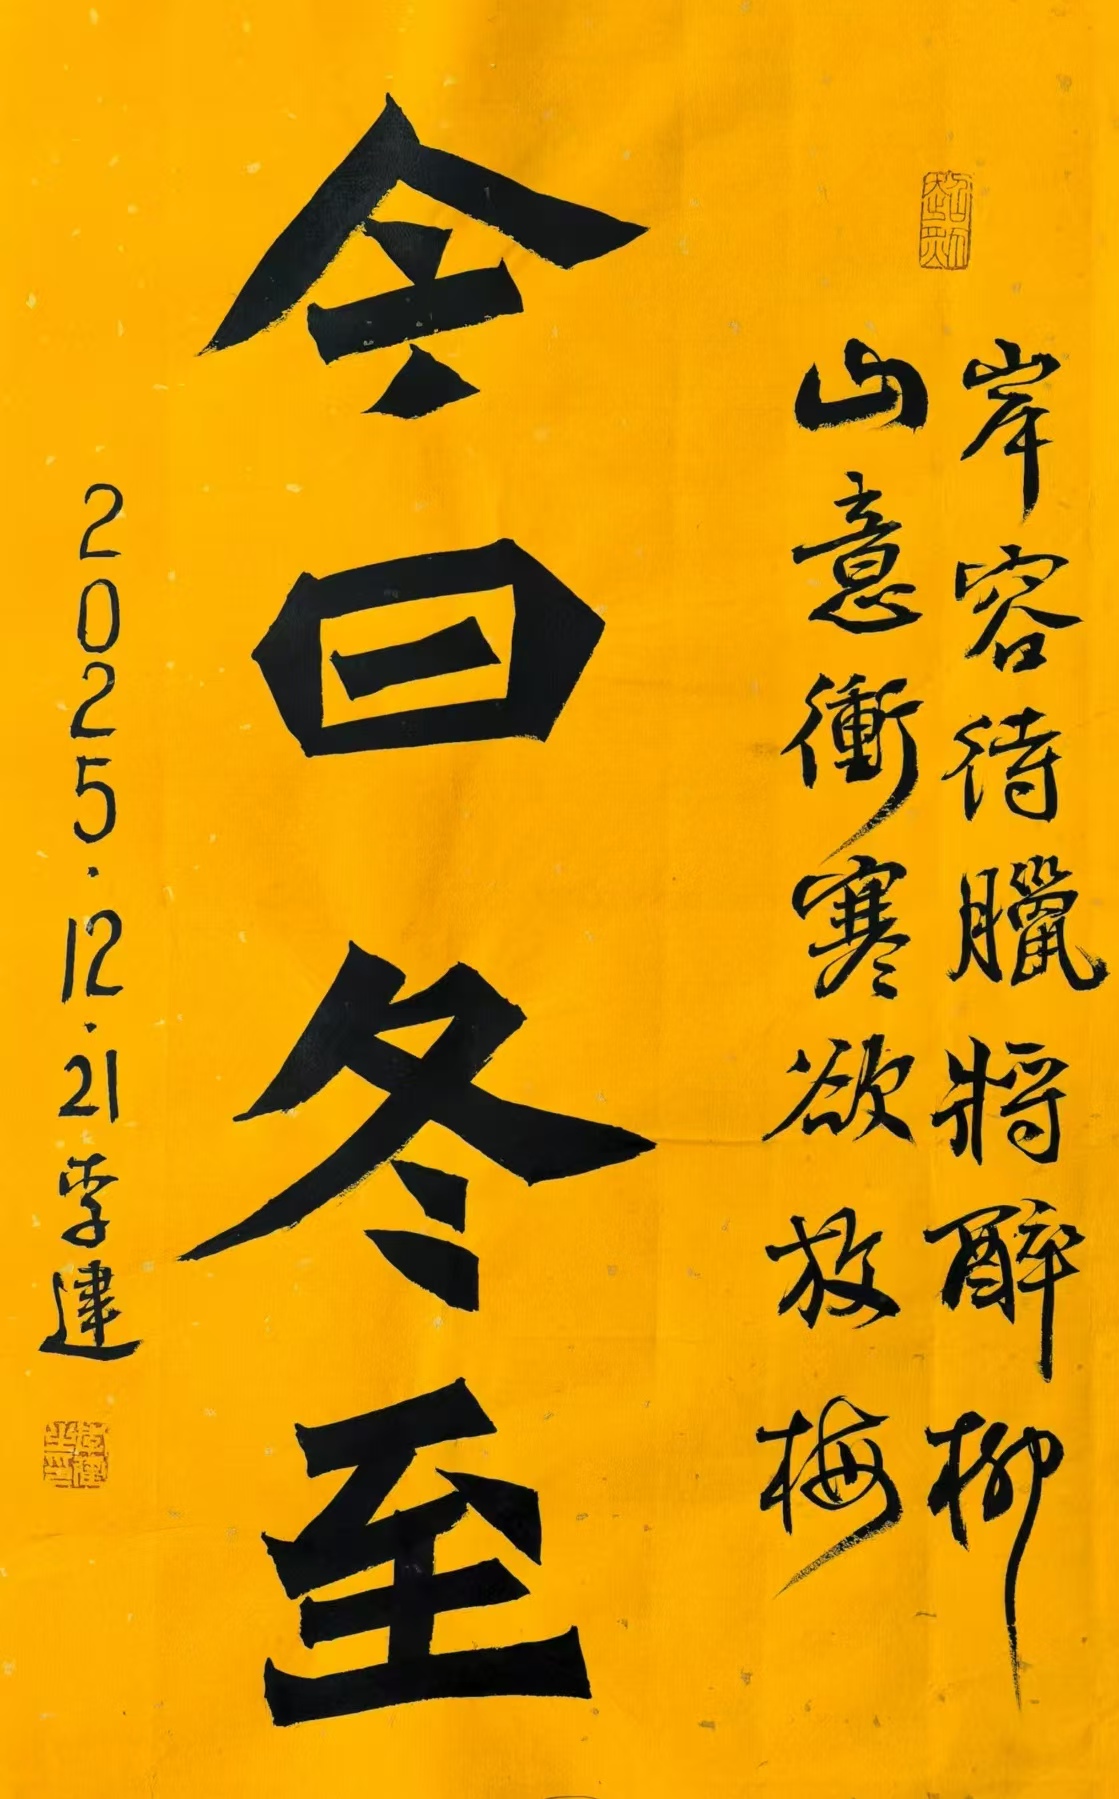 岸容待臘將醉柳
山意衝寒欲放梅
今日冬至
2025.12.21李建